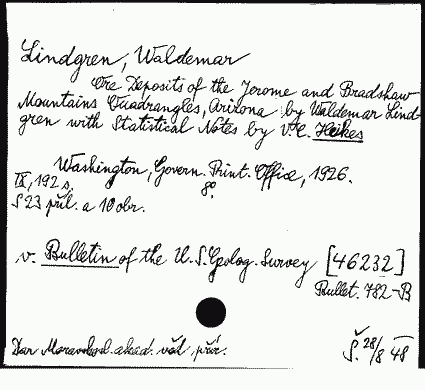 Lindgren, Waldemar
Ore Deposits of the Jerome and Bradshaw
Mountains Quadrangles, Arizona by Waldemar Lind-
gren with Statistical Notes by V. C. Heikes
Washington, Govern. Print. Office, 1926.
IX, 192 s. 8º.
S 23 příl. a 10 obr.
v. Bulletin of the U. S. Geolog. Survey [46232]
Bullet. 782-B
Dar Moravskosl. akad. věd přír.
Š. 28/8 48